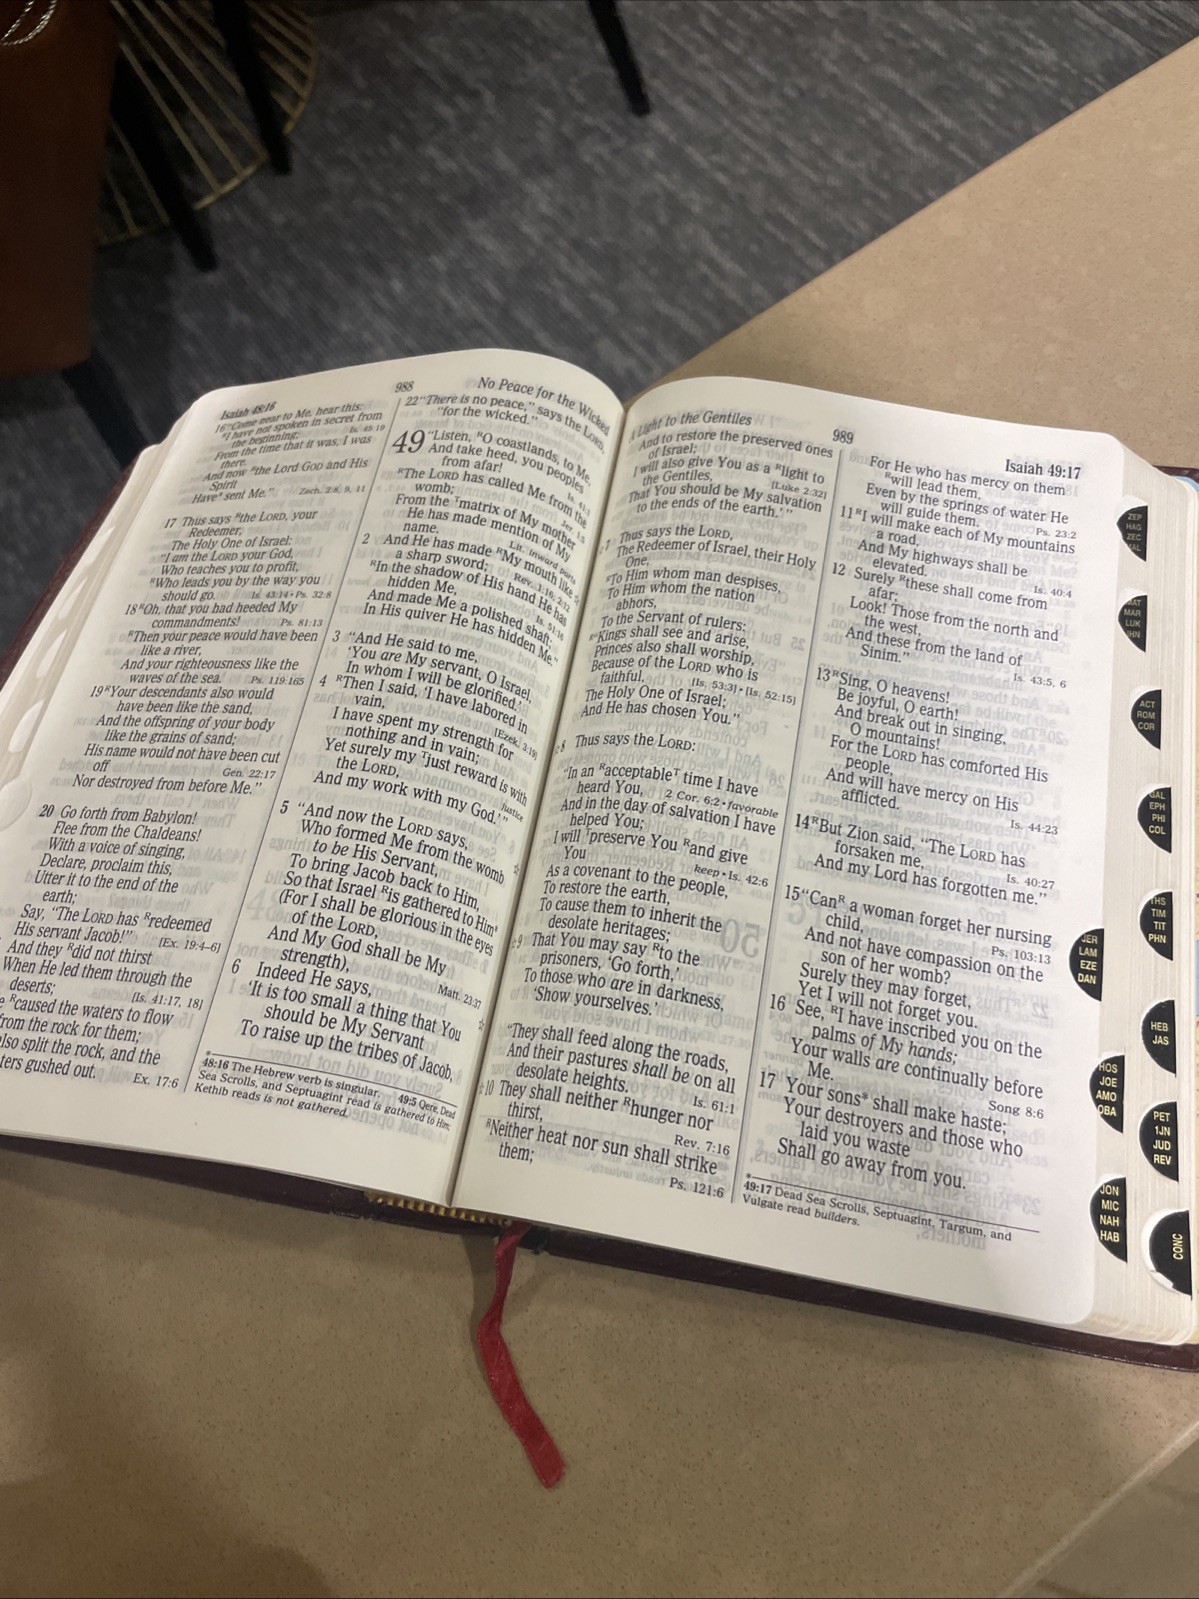 Isaiah 48:16
16 "Come near to Me, hear this:
ᴿI have not spoken in secret from
the beginning; Is. 45:19
From the time that it was, I was
there.
And now ᴿthe Lord GOD and His
Spirit
Have* sent Me." Zech. 2:8, 9, 11
17 Thus says ᴿthe LORD, your
Redeemer,
The Holy One of Israel:
"I am the LORD your God,
Who teaches you to profit,
ᴿWho leads you by the way you
should go. Is. 43:14 • Ps. 32:8
18 ᴿOh, that you had heeded My
commandments! Ps. 81:13
ᴿThen your peace would have been
like a river,
And your righteousness like the
waves of the sea. Ps. 119:165
19 ᴿYour descendants also would
have been like the sand,
And the offspring of your body
like the grains of sand;
His name would not have been cut
off Gen. 22:17
Nor destroyed from before Me."
20 Go forth from Babylon!
Flee from the Chaldeans!
With a voice of singing,
Declare, proclaim this,
Utter it to the end of the
earth;
Say, "The LORD has ᴿredeemed
His servant Jacob!" [Ex. 19:4–6]
And they ᴿdid not thirst
When He led them through the
deserts; [Is. 41:17, 18]
ᴿcaused the waters to flow
from the rock for them;
also split the rock, and the
ters gushed out. Ex. 17:6
988
No Peace for the Wicked
22 "There is no peace," says the LORD,
"for the wicked."
49 "Listen, ᴿO coastlands, to Me,
And take heed, you peoples
from afar! Is. 41:1
ᴿThe LORD has called Me from the
womb; Jer. 1:5
From the ᵀmatrix of My mother
He has made mention of My
name. Lit. inward parts
2 And He has made ᴿMy mouth like
a sharp sword; Rev. 1:16; 2:12
ᴿIn the shadow of His hand He has
hidden Me, Is. 51:16
And made Me a polished shaft;
In His quiver He has hidden Me."
3 "And He said to me,
'You are My servant, O Israel,
In whom I will be glorified.'
4 ᴿThen I said, 'I have labored in
vain, [Ezek. 3:19]
I have spent my strength for
nothing and in vain;
Yet surely my ᵀjust reward is with
the LORD, justice
And my work with my God.' "
5 "And now the LORD says,
Who formed Me from the womb
to be His Servant,
To bring Jacob back to Him,
So that Israel ᴿis gathered to Him*
(For I shall be glorious in the eyes
of the LORD,
And My God shall be My
strength), Matt. 23:37
6 Indeed He says,
'It is too small a thing that You
should be My Servant
To raise up the tribes of Jacob,
*
48:16 The Hebrew verb is singular. 49:5 Qere, Dead
Sea Scrolls, and Septuagint read is gathered to Him;
Kethib reads is not gathered.
A Light to the Gentiles
And to restore the preserved ones
of Israel;
I will also give You as a ᴿlight to
the Gentiles, [Luke 2:32]
That You should be My salvation
to the ends of the earth.' "
7 Thus says the LORD,
The Redeemer of Israel, their Holy
One,
ᴿTo Him whom man despises,
To Him whom the nation
abhors,
To the Servant of rulers:
ᴿ"Kings shall see and arise,
Princes also shall worship,
Because of the LORD who is
faithful, [Is. 53:3] • [Is. 52:15]
The Holy One of Israel;
And He has chosen You."
8 Thus says the LORD:
"In an ᴿacceptableᵀ time I have
heard You, 2 Cor. 6:2 • favorable
And in the day of salvation I have
helped You;
I will ᵀpreserve You ᴿand give
You keep • Is. 42:6
As a covenant to the people,
To restore the earth,
To cause them to inherit the
desolate heritages;
9 That You may say ᴿto the
prisoners, 'Go forth,'
To those who are in darkness,
'Show yourselves.'
"They shall feed along the roads,
And their pastures shall be on all
desolate heights. Is. 61:1
10 They shall neither ᴿhunger nor
thirst, Rev. 7:16
ᴿNeither heat nor sun shall strike
them; Ps. 121:6
989
Isaiah 49:17
For He who has mercy on them
ᴿwill lead them,
Even by the springs of water He
will guide them. Ps. 23:2
11 ᴿI will make each of My mountains
a road,
And My highways shall be
elevated. Is. 40:4
12 Surely ᴿthese shall come from
afar;
Look! Those from the north and
the west,
And these from the land of
Sinim." Is. 43:5, 6
13 ᴿSing, O heavens!
Be joyful, O earth!
And break out in singing,
O mountains!
For the LORD has comforted His
people,
And will have mercy on His
afflicted. Is. 44:23
14 ᴿBut Zion said, "The LORD has
forsaken me, Is. 40:27
And my Lord has forgotten me."
15 "Canᴿ a woman forget her nursing
child, Ps. 103:13
And not have compassion on the
son of her womb?
Surely they may forget,
Yet I will not forget you.
16 See, ᴿI have inscribed you on the
palms of My hands;
Your walls are continually before
Me. Song 8:6
17 Your sons* shall make haste;
Your destroyers and those who
laid you waste
Shall go away from you.
*
49:17 Dead Sea Scrolls, Septuagint, Targum, and
Vulgate read builders.
ZEP
HAG
ZEC
MAL
MAT
MAR
LUK
JHN
ACT
ROM
COR
GAL
EPH
PHI
COL
THS
TIM
TIT
PHN
JER
LAM
EZE
DAN
HEB
JAS
HOS
JOE
AMO
OBA
PET
1JN
JUD
REV
JON
MIC
NAH
HAB
CONC